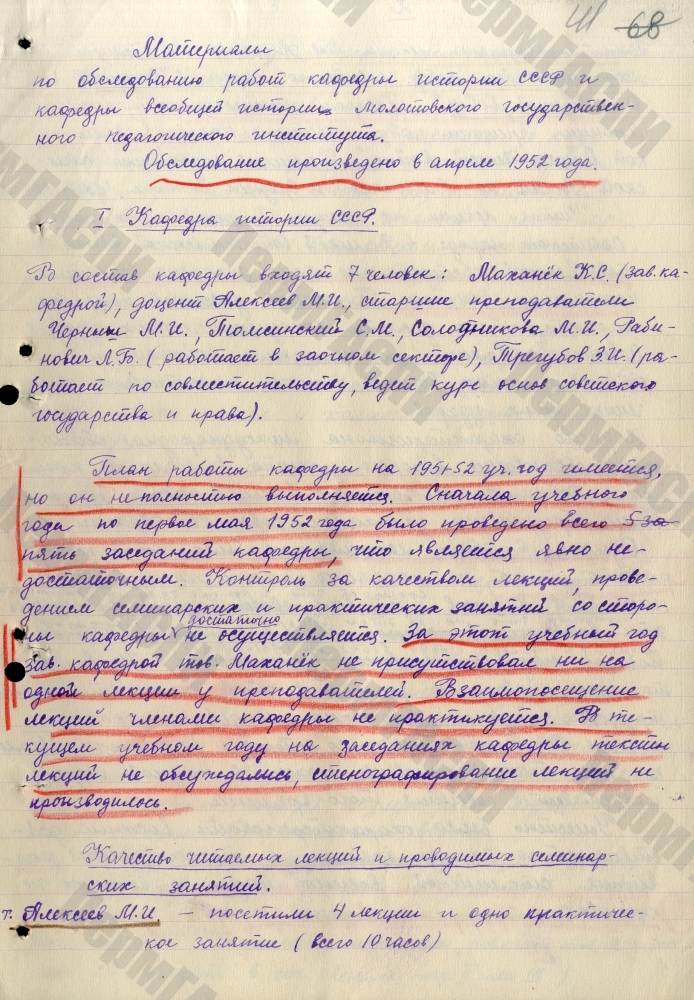 Ш 68
Материалы
по обследованию работ кафедры истории СССР и
кафедры всеобщей истории Молотовского государствен-
ного педагогического института.
Обследование произведено в апреле 1952 года.
I Кафедра истории СССР.
В состав кафедры входят 7 человек: Маханёк К.С. (зав. ка-
федрой), доцент Алексеев М.И., старшие преподаватели
Черныш М.И., Томсинский С.М., Солодникова М.И., Раби-
нович Л.Б. (работает в заочном секторе), Трегубов З.И. (ра-
ботает по совместительству, ведет курс основ советского
государства и права).
План работы кафедры на 1951-52 уч. год имеется,
но он неполностью выполняется. Сначала учебного
года по первое мая 1952 года было проведено всего 5 за
пять заседаний кафедры, что является явно не-
достаточным. Контроль за качеством лекций, прове-
дением семинарских и практических занятий со сторо-
ны кафедры достаточно не осуществляется. За этот учебный год
зав. кафедрой тов. Маханёк не присутствовал ни на
одной лекции у преподавателей. Взаимопосещение
лекций членами кафедры не практикуется. В те-
кущем учебном году на заседаниях кафедры тексты
лекций не обсуждались, стенографирование лекций не
производилось.
Качество читаемых лекций и проводимых семинар-
ских занятий.
т. Алексеев М.И. — посетили 4 лекции и одно практичес-
кое занятие (всего 10 часов)
ПермГАСПИ